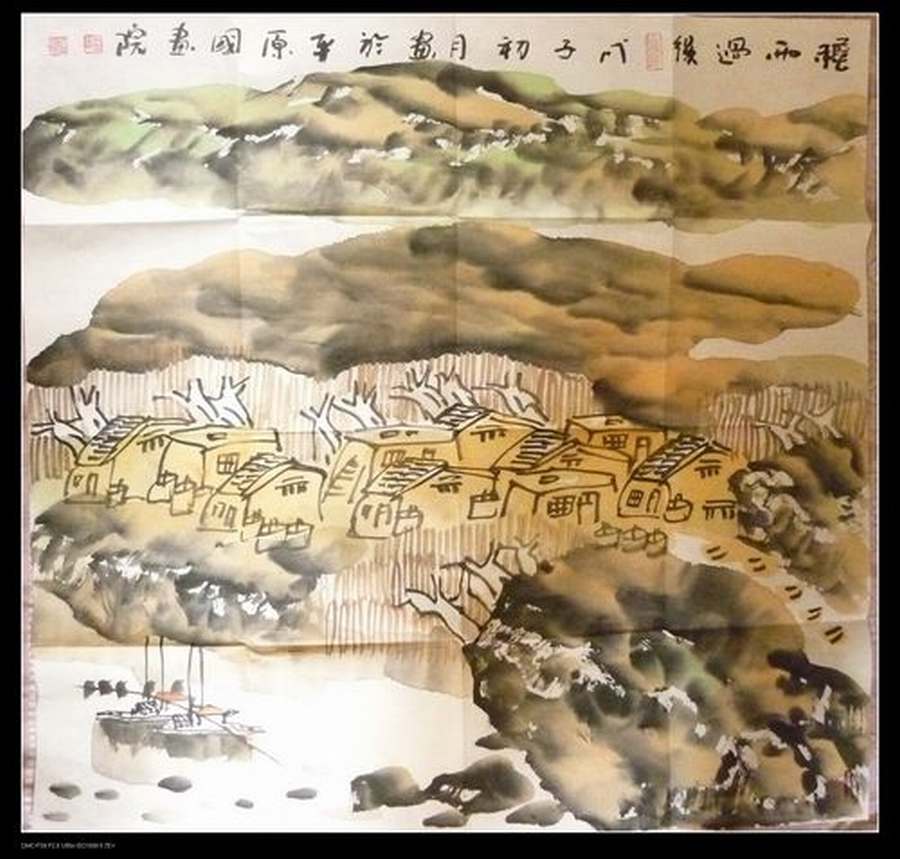 雨過後戊子初月畫於平原國畫院